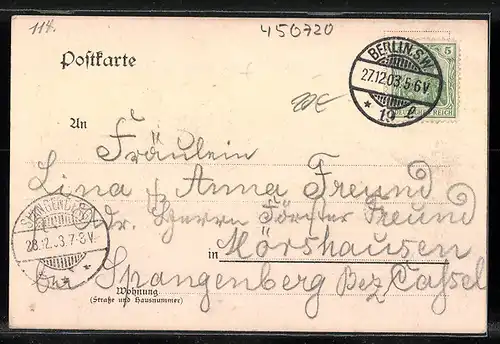 114.
450720
Postkarte
BERLIN S.W.
27.12.03.5-6V.
* 19 e
5
DEUTSCHES REICH
An
Fräulein
Lina & Anna Freund
Adr. Herrn Förster Freund
in Mörshausen
SPANGENBERG
28.12.03.7-8V.
* * *
Spangenberg Bez Cassel
Wohnung
(Straße und Hausnummer)